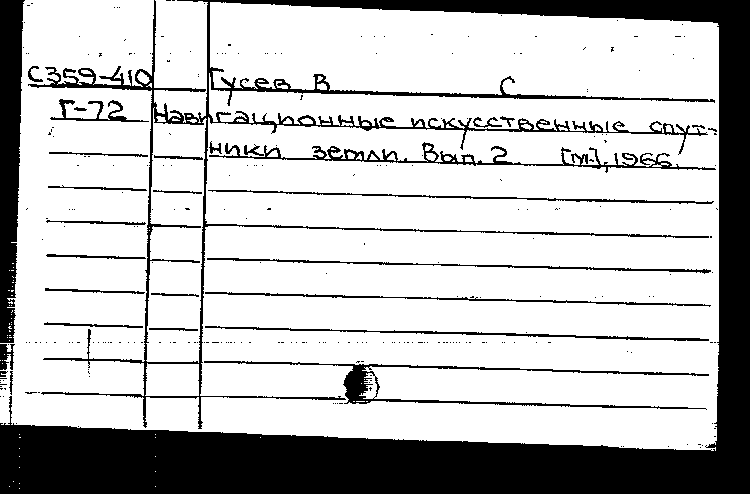 С359-410 Гусев, В. С.
Г-72 Навигационные искусственные спут-
ники земли. Вып. 2 [М.], 1966.